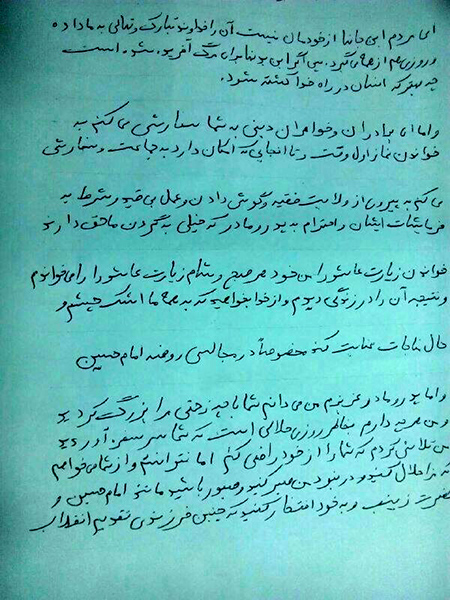 ای مردم این جانها از خودمان نیست آن را خداوند تبارک و تعالی به ما داده
و روزی هم از ما می‌گیرد. پس اگر این بدنها برای مرگ آفریده شده است
چه بهتر که انسان در راه خدا کشته شود.
و اما ای برادران و خواهران دینی به شما سفارشی می کنم به
خواندن نماز اول وقت و تا آنجایی که امکان دارد به جماعت و سفارشی
می کنم به پیروی از ولایت فقیه و گوش دادن و عمل بی قید و شرط به
فرمایشات ایشان و احترام به پدر و مادر که خیلی به گردن ما حق دارند
خواندن زیارت عاشورا من خود هر صبح و شام زیارت عاشورا را می خواندم
و نتیجه آن را در زندگی دیدم و از خدا بخواهید که به همه ما اشک چشم و
حال مناجات عنایت کند مخصوصاً در مجالس روضه امام حسین
و اما پدر و مادر عزیزم من می دانم شما با چه زحمتی مرا بزرگ کردید
و من هر چه دارم بخاطر روزی حلالی است که شما سر سفره آوردید
من تلاش کردم که شما را از خود راضی کنم اما نتوانستم و از شما می خواهم
که مرا حلال کنید و در نبودن من صبر کنید و صبور باشید مانند امام حسین و
حضرت زینب و به خود افتخار کنید که چنین فرزندی تقدیم انقلاب